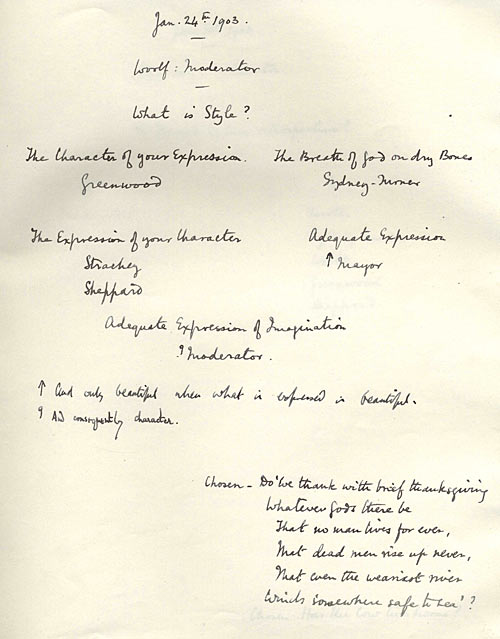 Jan. 24th 1903.
Woolf: Moderator
What is Style?
The Character of your Expression.
Greenwood
The Breath of God on dry Bones
Sydney-Turner
The Expression of your Character
Strachey
Sheppard
Adequate Expression
↑ Mayor
Adequate Expression of Imagination
Moderator.
↑ And only beautiful when what is expressed is beautiful.
And consequently character.
Chosen - Do 'We thank with brief thanksgiving
Whatever Gods there be
That no man lives for ever,
That dead men rise up never,
That even the weariest river
Winds somewhere safe to sea'?